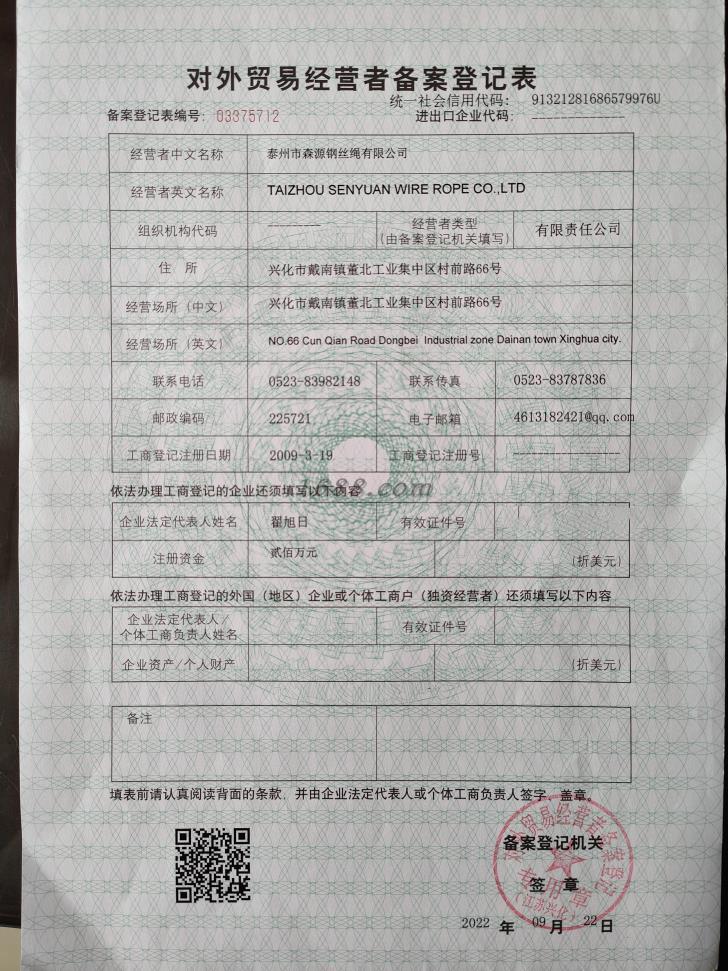 对外贸易经营者备案登记表
统一社会信用代码: 91321281686579976U
备案登记表编号: 03375712
进出口企业代码: -------------
经营者中文名称 泰州市森源钢丝绳有限公司
经营者英文名称 TAIZHOU SENYUAN WIRE ROPE CO.,LTD
组织机构代码 --------- 经营者类型 (由备案登记机关填写) 有限责任公司
住 所 兴化市戴南镇董北工业集中区村前路66号
经营场所 (中文) 兴化市戴南镇董北工业集中区村前路66号
经营场所 (英文) NO.66 Cun Qian Road Dongbei Industrial zone Dainan town Xinghua city.
联系电话 0523-83982148 联系传真 0523-83787836
邮政编码 225721 电子邮箱 4613182421@qq.com
工商登记注册日期 2009-3-19 工商登记注册号 ------------------
依法办理工商登记的企业还须填写以下内容
1688.com
企业法定代表人姓名 翟旭日 有效证件号
注册资金 贰佰万元 (折美元)
依法办理工商登记的外国 (地区) 企业或个体工商户 (独资经营者) 还须填写以下内容
企业法定代表人/
个体工商负责人姓名 有效证件号
企业资产/个人财产 (折美元)
备注
填表前请认真阅读背面的条款,并由企业法定代表人或个体工商负责人签字、盖章。
对外贸易经营者备案登记
备案登记机关
专用章
签 章
(江苏兴化)
2022 年 09 月 22 日